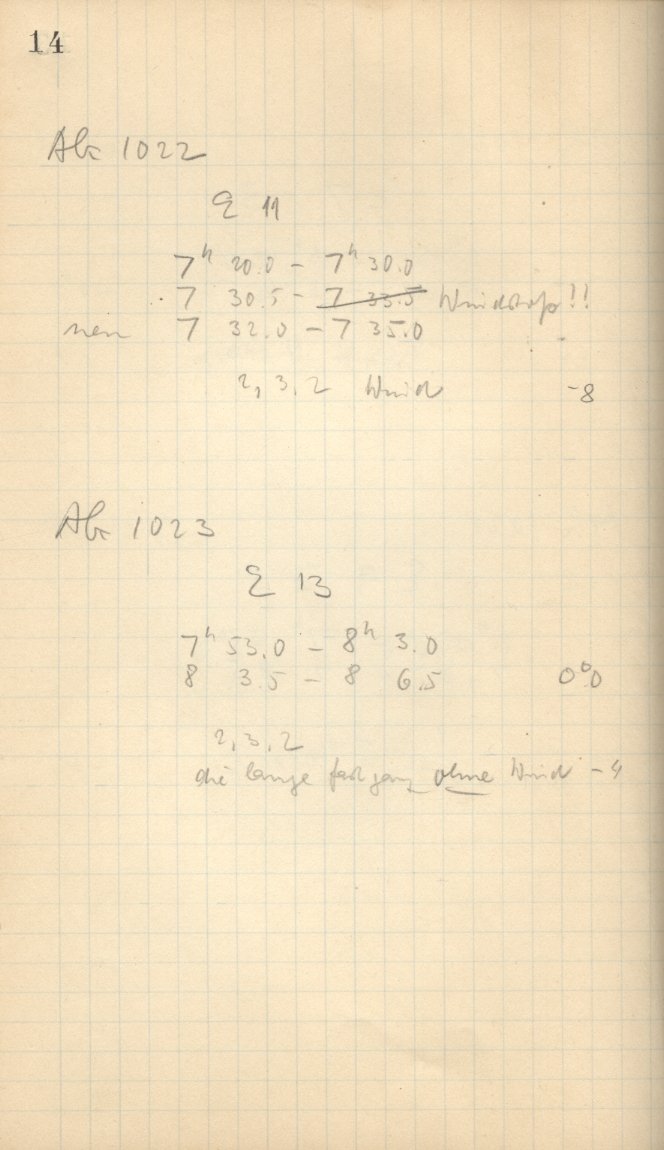 14
Abx 1022
E 11
7ʰ 20.0 – 7ʰ 30.0
7 30.5 – 7 33.5 Windstoß!!
neu 7 32.0 – 7 35.0
2, 3, 2 Wind -8
Abx 1023
E 13
7ʰ 53.0 – 8ʰ 3.0
8 3.5 – 8 6.5 0°0
2, 3, 2
die lange fast ganz ohne Wind –4